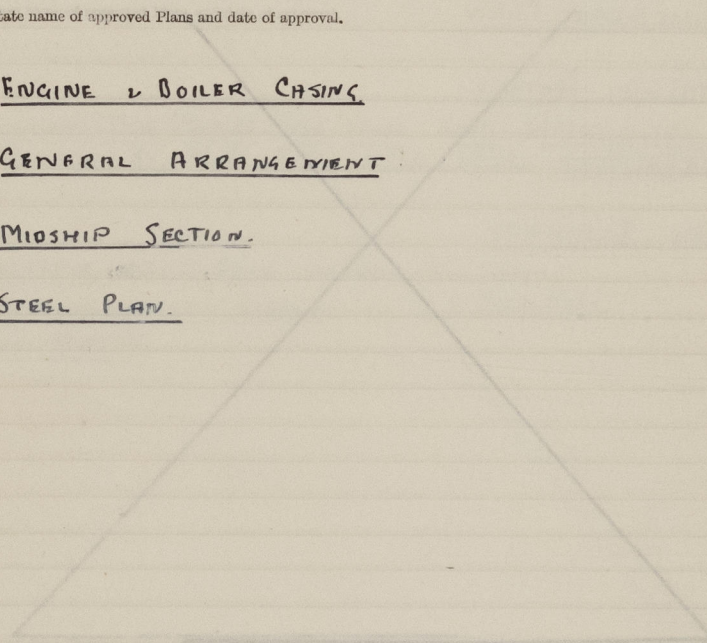 tate name of approved Plans and date of approval.
ENGINE & BOILER CASING
GENERAL ARRANGEMENT
MIDSHIP SECTION.
STEEL PLAN.